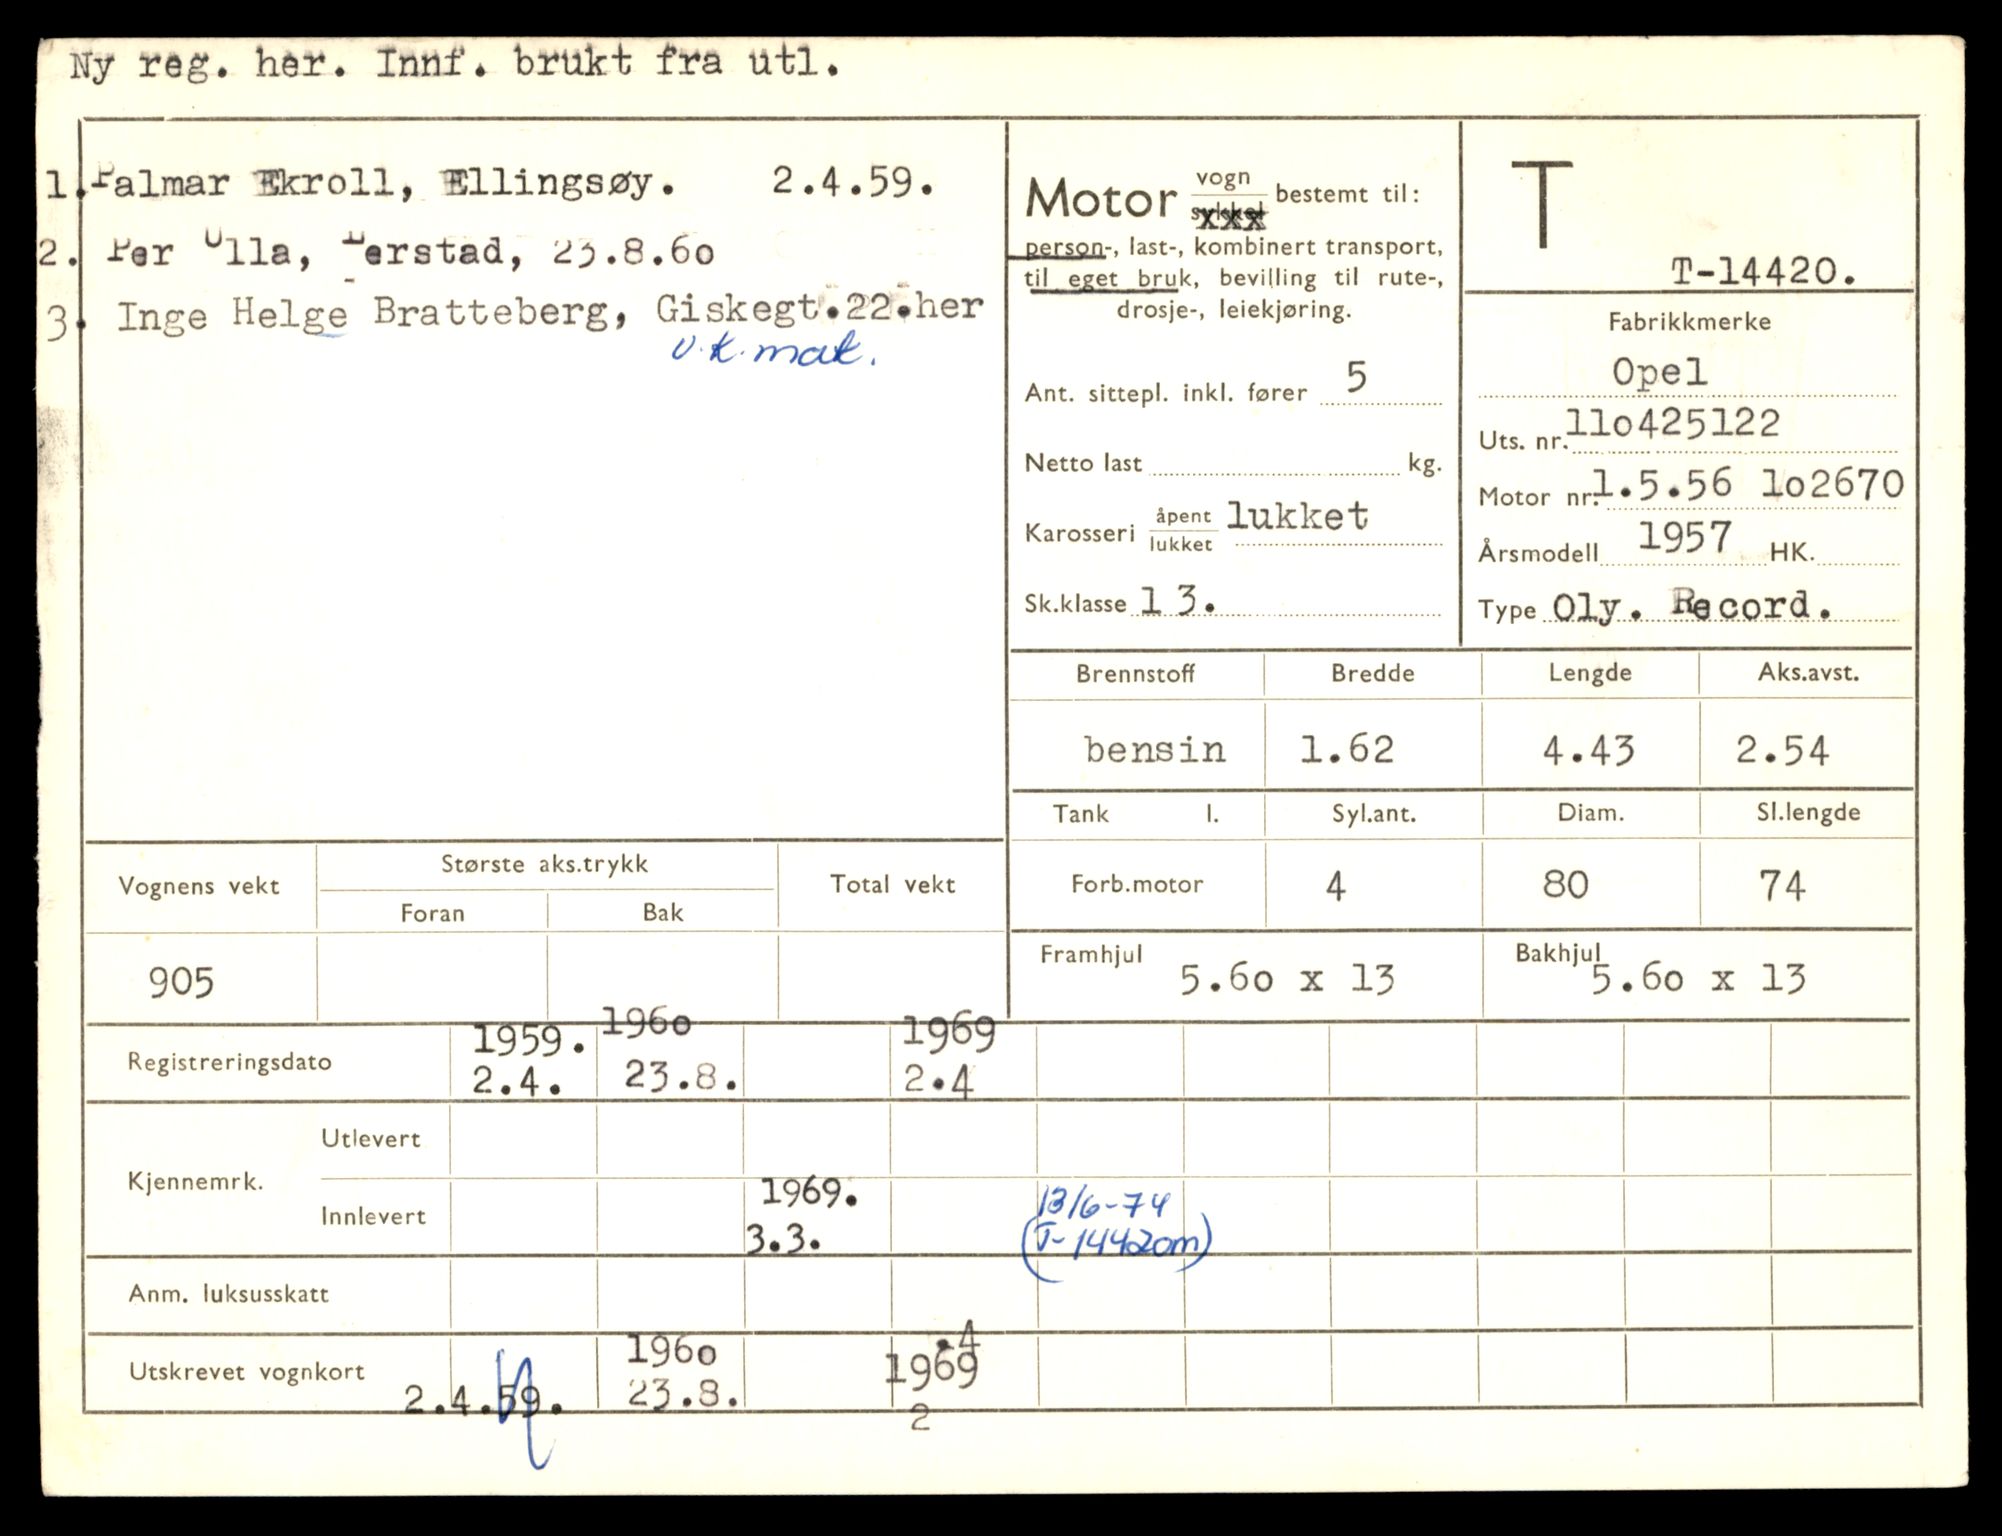 Ny reg. her. Innf. brukt fra utl.
1. Palmar Ekroll, Ellingsøy. 2.4.59.
2. Per Ulla, Lerstad, 23.8.6o
3. Inge Helge Bratteberg, Giskegt.22.her
v.k. mak.
Motor vogn bestemt til:
person-, last-, kombinert transport,
til eget bruk, bevilling til rute-,
drosje-, leiekjøring.
Ant. sittepl. inkl. fører 5
Netto last kg.
Karosseri åpent lukket
lukket
Sk.klasse 1 3.
T
T-14420.
Fabrikkmerke
Opel
Uts. nr. 11o425122
Motor nr. 1.5.56 1o2670
Årsmodell 1957 HK.
Type Oly. Record.
Brennstoff Bredde Lengde Aks.avst.
bensin 1.62 4.43 2.54
Tank l. Syl.ant. Diam. Sl.lengde
Forb.motor 4 80 74
Framhjul 5.6o x 13 Bakhjul 5.6o x 13
Vognens vekt Største aks.trykk Total vekt
Foran Bak
905
1959. 196o 1969
Registreringsdato 2.4. 23.8. 2.4
Kjennemrk. Utlevert
Innlevert 1969. 13/6-74
3.3. (T-14420m)
Anm. luksusskatt
196o .4
Utskrevet vognkort 1969
2.4.59. 23.8.
2